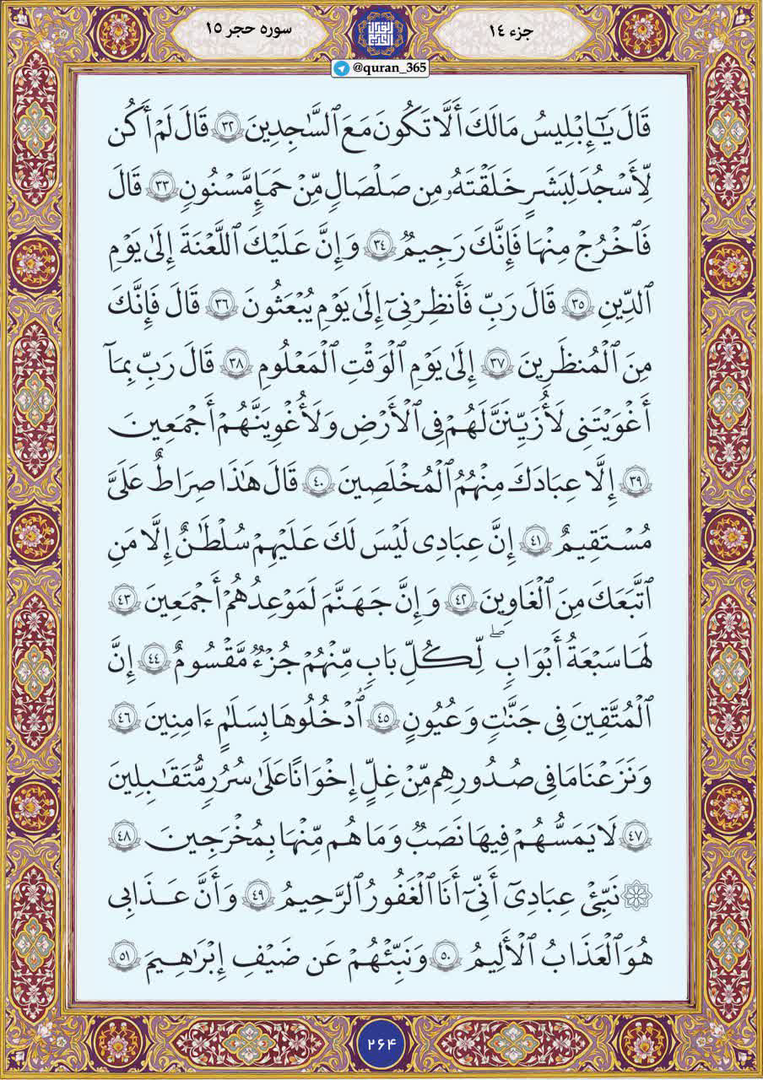 جزء ۱۴
سوره حجر ۱۵
@quran_365
قَالَ يَـٰٓإِبۡلِيسُ مَالَكَ أَلَّا تَكُونَ مَعَ ٱلسَّـٰجِدِينَ ٣٢ قَالَ لَمۡ أَكُن
لِّأَسۡجُدَ لِبَشَرٍ خَلَقۡتَهُۥ مِن صَلۡصَـٰلٖ مِّنۡ حَمَإٖ مَّسۡنُونٖ ٣٣ قَالَ
فَٱخۡرُجۡ مِنۡهَا فَإِنَّكَ رَجِيمٞ ٣٤ وَإِنَّ عَلَيۡكَ ٱللَّعۡنَةَ إِلَىٰ يَوۡمِ
ٱلدِّينِ ٣٥ قَالَ رَبِّ فَأَنظِرۡنِيٓ إِلَىٰ يَوۡمِ يُبۡعَثُونَ ٣٦ قَالَ فَإِنَّكَ
مِنَ ٱلۡمُنظَرِينَ ٣٧ إِلَىٰ يَوۡمِ ٱلۡوَقۡتِ ٱلۡمَعۡلُومِ ٣٨ قَالَ رَبِّ بِمَآ
أَغۡوَيۡتَنِي لَأُزَيِّنَنَّ لَهُمۡ فِي ٱلۡأَرۡضِ وَلَأُغۡوِيَنَّهُمۡ أَجۡمَعِينَ
٣٩ إِلَّا عِبَادَكَ مِنۡهُمُ ٱلۡمُخۡلَصِينَ ٤٠ قَالَ هَـٰذَا صِرَٰطٌ عَلَيَّ
مُسۡتَقِيمٌ ٤١ إِنَّ عِبَادِي لَيۡسَ لَكَ عَلَيۡهِمۡ سُلۡطَـٰنٌ إِلَّا مَنِ
ٱتَّبَعَكَ مِنَ ٱلۡغَاوِينَ ٤٢ وَإِنَّ جَهَنَّمَ لَمَوۡعِدُهُمۡ أَجۡمَعِينَ ٤٣
لَهَا سَبۡعَةُ أَبۡوَٰبٖ ۖ لِّكُلِّ بَابٖ مِّنۡهُمۡ جُزۡءٞ مَّقۡسُومٌ ٤٤ إِنَّ
ٱلۡمُتَّقِينَ فِي جَنَّـٰتٖ وَعُيُونٍ ٤٥ ٱدۡخُلُوهَا بِسَلَـٰمٍ ءَامِنِينَ ٤٦
وَنَزَعۡنَا مَا فِي صُدُورِهِم مِّنۡ غِلٍّ إِخۡوَٰنًا عَلَىٰ سُرُرٖ مُّتَقَـٰبِلِينَ
٤٧ لَا يَمَسُّهُمۡ فِيهَا نَصَبٞ وَمَا هُم مِّنۡهَا بِمُخۡرَجِينَ ٤٨
۞ نَبِّئۡ عِبَادِيٓ أَنِّيٓ أَنَا ٱلۡغَفُورُ ٱلرَّحِيمُ ٤٩ وَأَنَّ عَذَابِي
هُوَ ٱلۡعَذَابُ ٱلۡأَلِيمُ ٥٠ وَنَبِّئۡهُمۡ عَن ضَيۡفِ إِبۡرَٰهِيمَ ٥١
۲۶۴